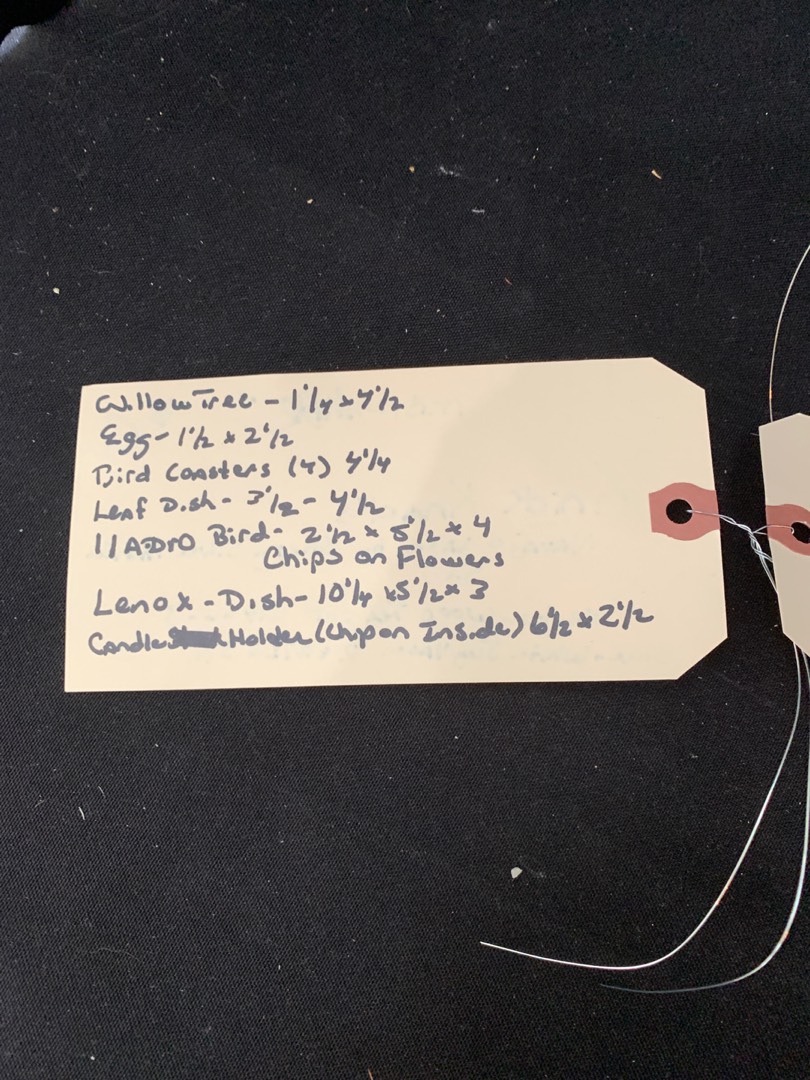 Willow Tree - 1 1/4 x 4 1/2
Egg - 1 1/2 x 2 1/2
Bird Coasters (4) 4 1/4
Leaf Dish - 3 1/2 - 4 1/2
llADrO Bird - 2 1/2 x 5 1/2 x 4
Chips on Flowers
Lenox - Dish - 10 1/4 x 5 1/2 x 3
Candle Holder (Chip on Inside) 6 1/2 x 2 1/2